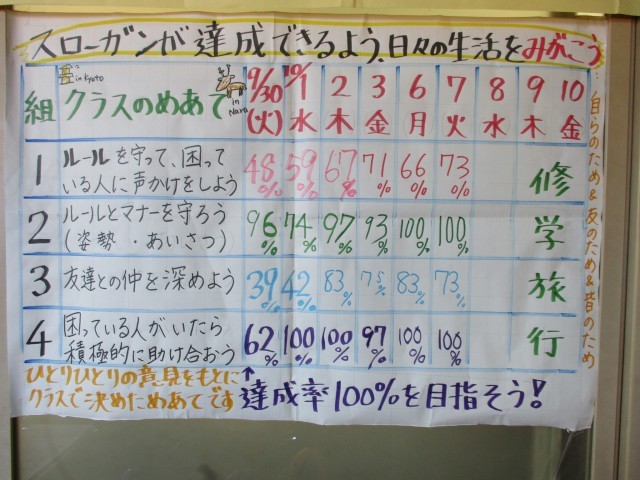 スローガンが達成できるよう、日々の生活をみがこう
組 in kyoto クラスのめあて in Nara 9/30(火) 10/1水 2木 3金 6月 7火 8水 9木 10金
1 ルールを守って、困っている人に声かけをしよう 48% 59% 67% 71% 66% 73% 修
2 ルールとマナーを守ろう(姿勢・あいさつ) 96% 74% 97% 93% 100% 100% 学
3 友達との仲を深めよう 39% 42% 83% 75% 83% 73% 旅
4 困っている人がいたら積極的に助け合おう 62% 100% 100% 97% 100% 100% 行
ひとりひとりの意見をもとに
クラスで決めためあてです
↑達成率100%を目指そう!
自らのため&友のため&皆のため